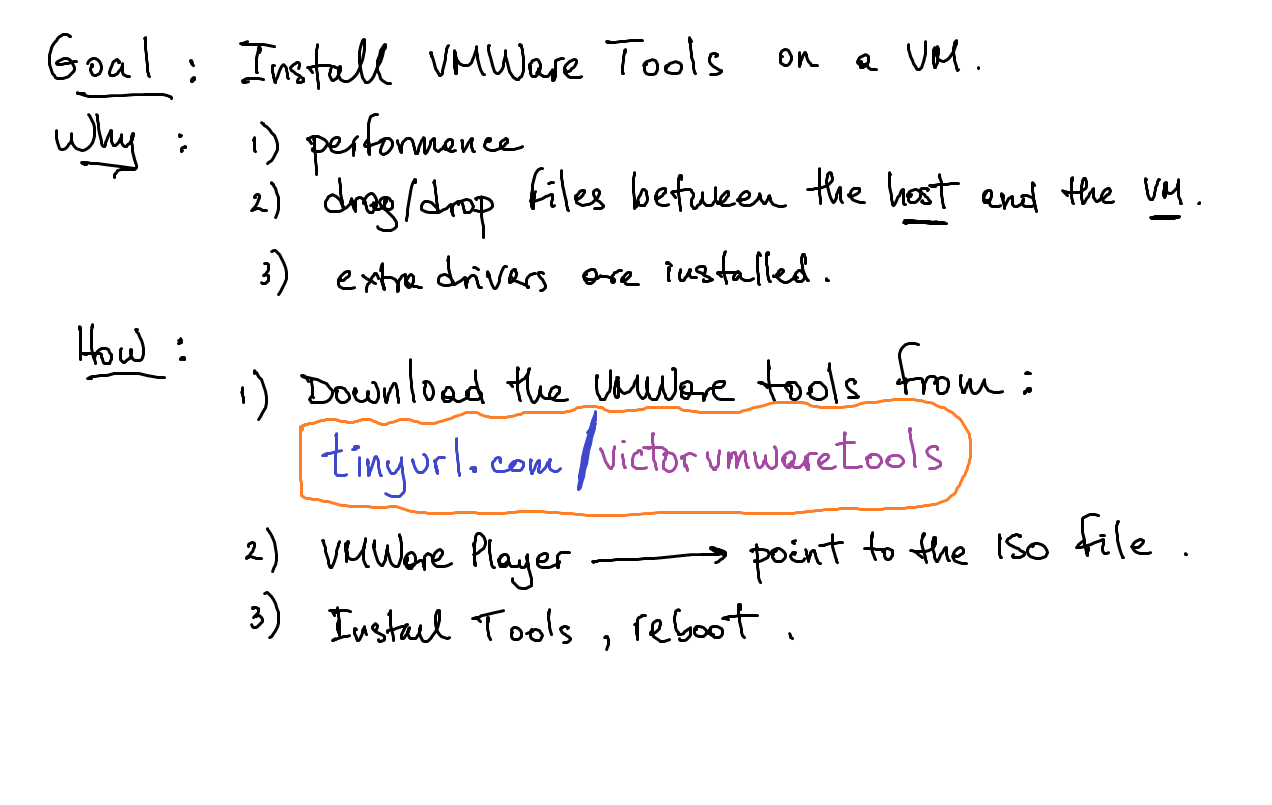 Goal : Install VMWare Tools on a VM.
Why : 1) performance
2) drag/drop files between the host and the VM.
3) extra drivers are installed.
How :
1) Download the VMWare tools from :
tinyurl.com/victorvmwaretools
2) VMWare Player → point to the ISO file .
3) Install Tools , reboot .